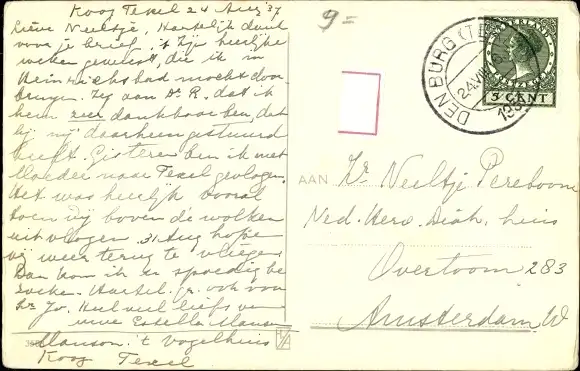 Koog Texel 24 Aug '37
Lieve Neeltje, Hartelijk dank
voor je brief. 't Zijn heerlijke
weken geweest, die ik in
Heinrichsbad mocht door-
brengen. Zeg aan Dr R. dat ik
hem zeer dankbaar ben, dat
hij mij daarheen gestuurd
heeft. Gisteren ben ik met
Moeder naar Texel gevlogen.
Het was heerlijk vooral
toen wij boven de wolken
uit vlogen. 31 Aug hopen
wij weer terug te vliegen.
Dan kom ik je spoedig be
zoeken. Hartel. gr. ook voor
Zr Jo. Heel veel liefs van
Estella Manson
Manson 't Vogelhuis
Koog Texel
9=
NEDERLAND
5 CENT
DEN BURG (TEXEL)
24.VIII
AAN
Zr Neeltje Pereboom
Ned. Herv. Diak. huis
Overtoom 283
Amsterdam W